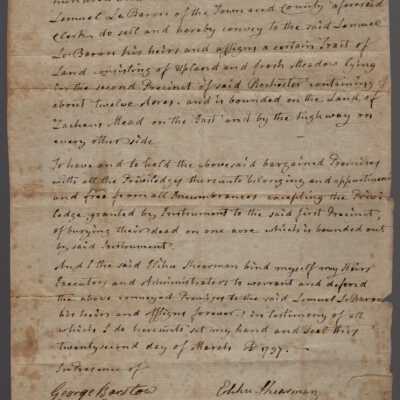 Lemuel LeBaron of the Town and County aforesaid
Clerk do sell and hereby convey to the said Lemuel
LeBaron his heirs and assigns a certain Tract of
Land consisting of Upland and fresh Meadow lying
in the second Precinct of said Rochester containing
about twelve Acres. and is bounded on the Land of
Zacheus Mead on the East and by the highway on
every other side
To have and to hold the abovesaid bargained Premises
with all the Priviledges thereunto belonging and appertaining
and free from all Incumbrances excepting the Privi-
ledge, granted by Instrument to the said first Precinct,
of burying their dead on one acre which is bounded out
by said Instrument.
And I the said Elihu Shearman bind myself my Heirs
Executors and Administrators to warrant and defend
the above conveyed Premises to the said Lemuel LeBaron
his heirs and Assigns forever; in testimony of all
which I do hereunto set my hand and seal this
twentysecond day of March AD 1797.
In Presence of
George Barstow Elihu Shearman